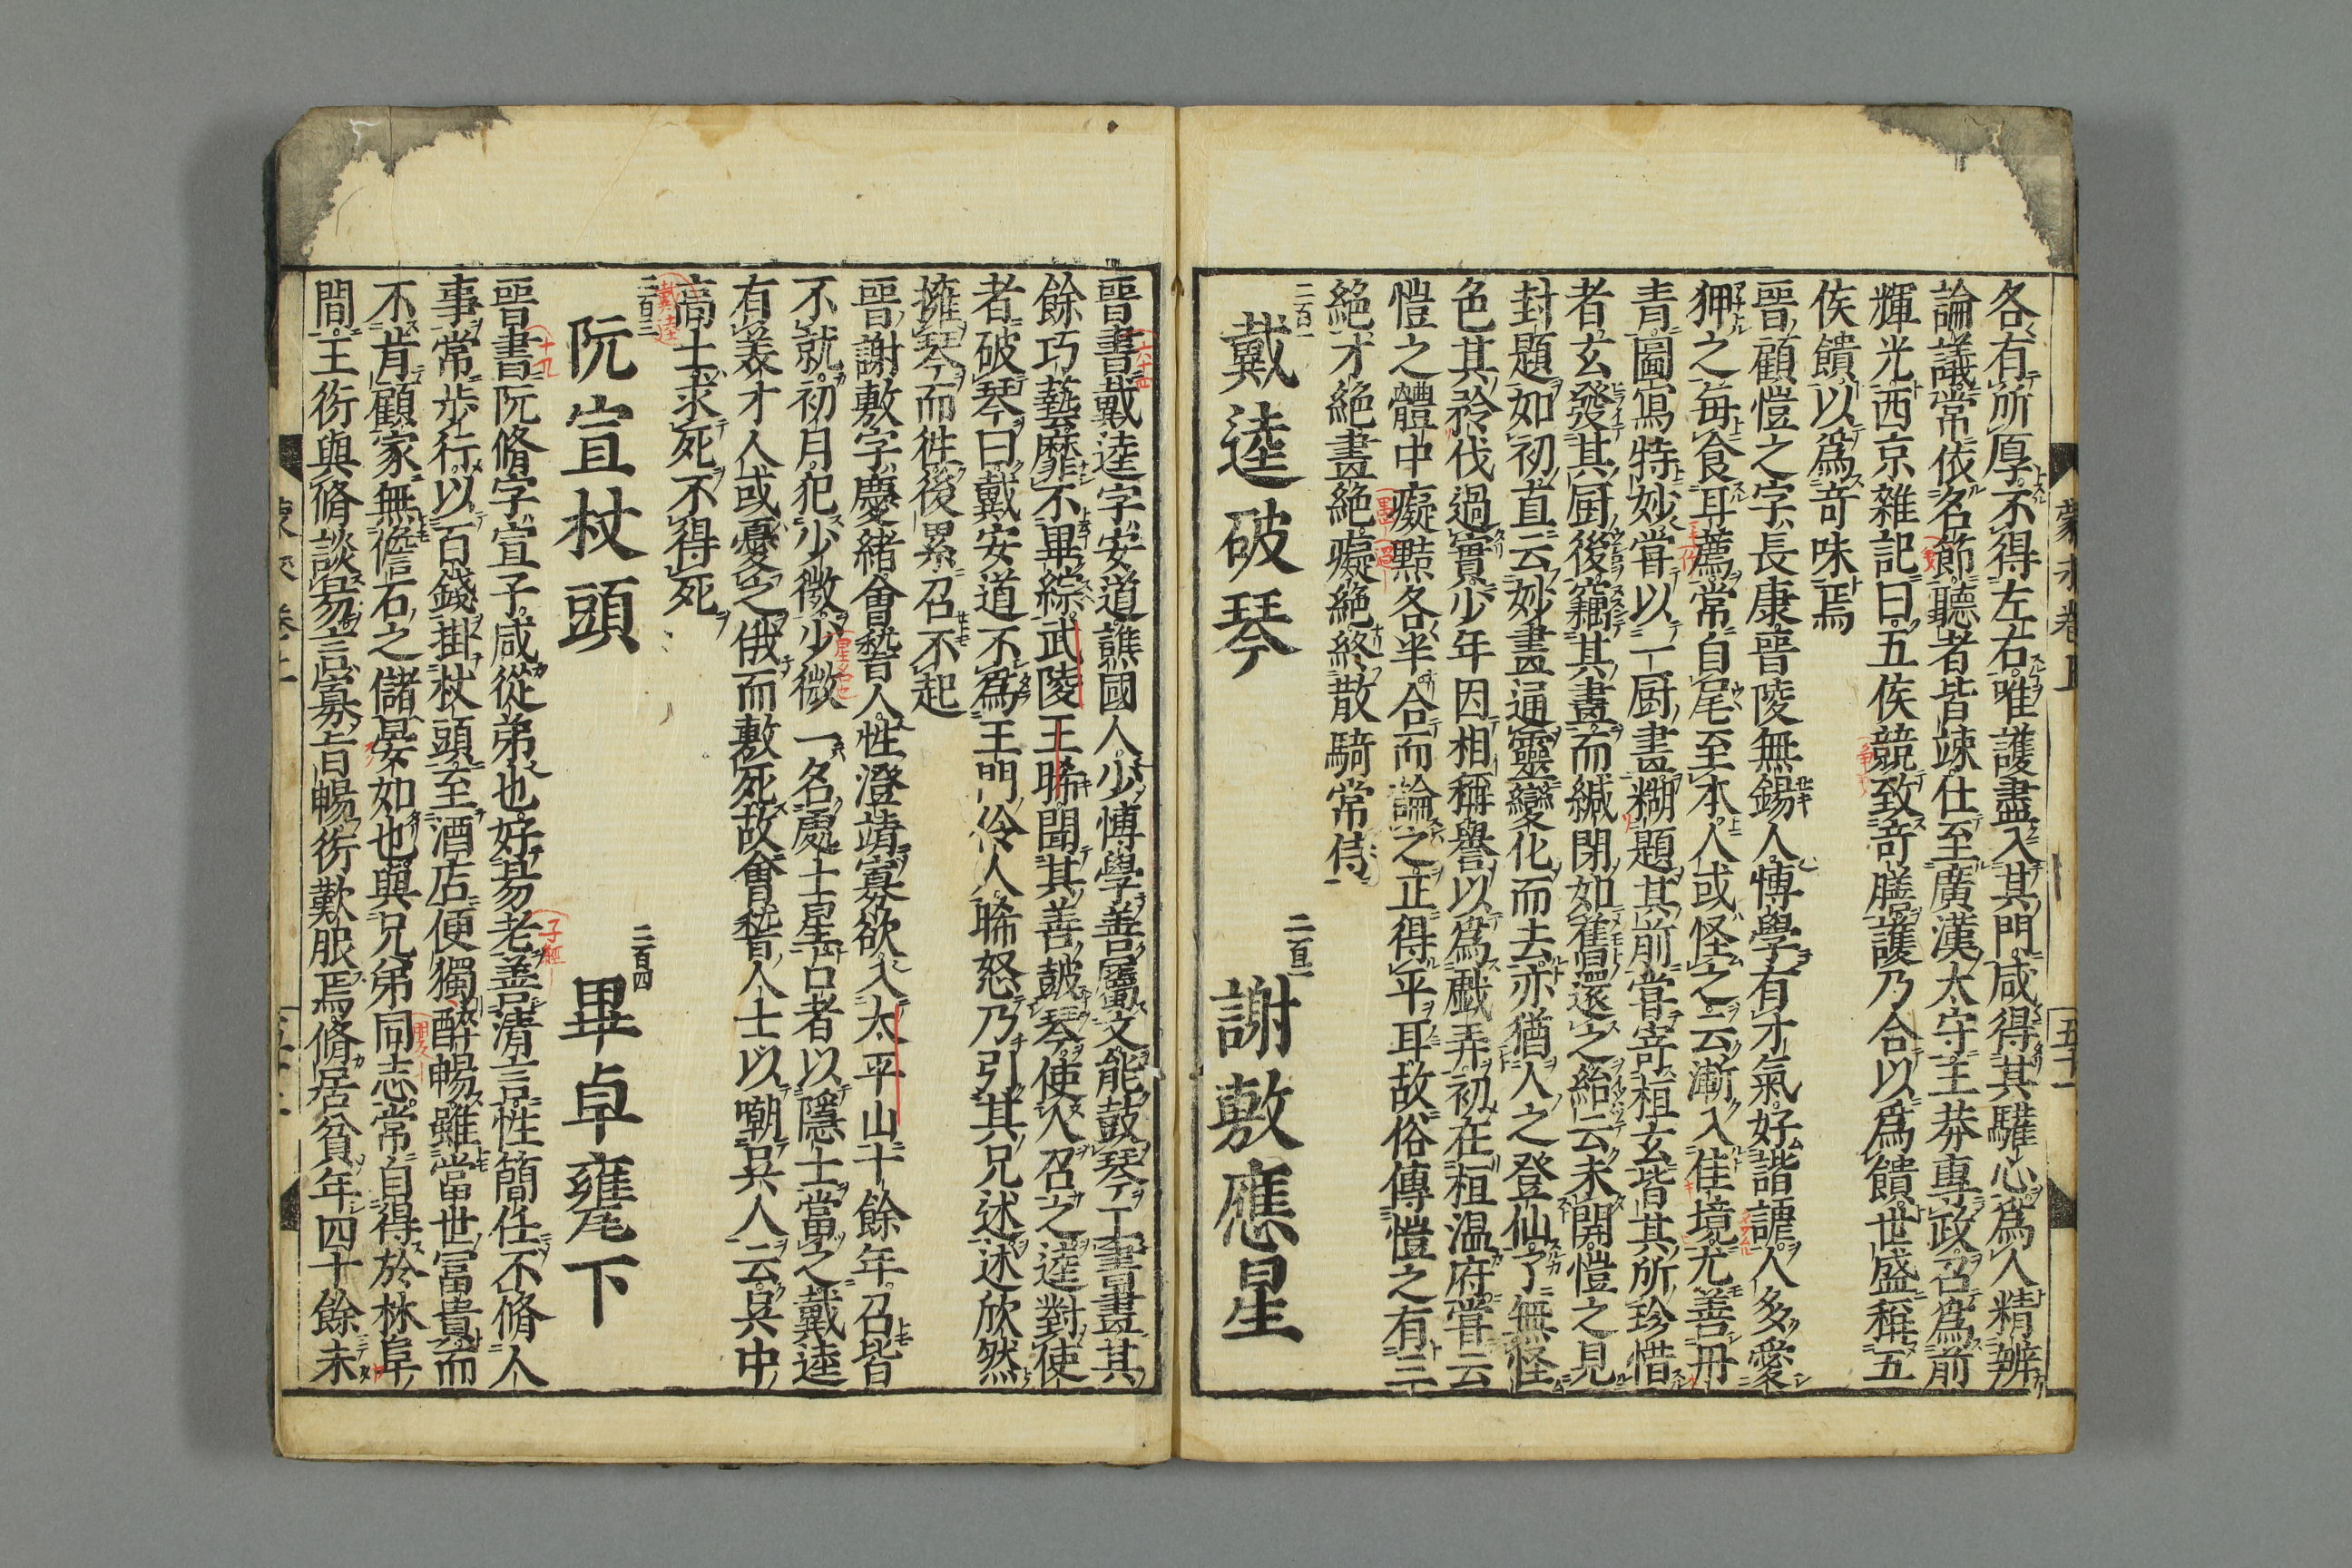 各有所厚不得左右唯護盡入其門咸得其驩心爲人精辨
論議常依名節聽者皆竦仕至廣漢太守王莽專政召爲前
輝光西京雜記曰五侯競致奇膳護乃合以爲饋世盛稱五
侯饋以爲奇味焉
晉顧愷之字長康晉陵無錫人博學有才氣好諧謔人多愛
狎之每食耳薦常自尾至本人或怪之云漸入佳境尤善丹
青圖寫特妙甞以一厨畫糊題其前甞寄桓玄皆其所珍惜
者玄發其厨後竊其畫而緘閉如舊還之紿云未開愷之見
封題如初直云妙畫通靈變化而去亦猶人之登仙了無怪
色其矜伐過實少年因相稱譽以爲戲弄初在桓温府甞云
愷之體中癡黠各半合而論之正得平耳故俗傳愷之有三
絶才絶畫絶癡絶終散騎常侍
戴逵破琴
謝敷應星
晉書戴逵字安道譙國人少博學善屬文能鼓琴工書畫其
餘巧藝靡不畢綜武陵王晞聞其善鼓琴使人召之逵對使
者破琴曰戴安道不爲王門伶人晞怒乃引其兄述述欣然
擁琴而徃後累召不起
晉謝敷字慶緒會稽人性澄靖寡欲入太平山十餘年召皆
不就初月犯少微少微一名處士星占者以隱士當之戴逵
有美才人或憂之俄而敷死故會稽人士以嘲吳人云吳中
高士求死不得死
二百三
阮宣杖頭
二百四
畢卓甕下
晉書阮脩字宣子咸從弟也好易老善清言性簡任不脩人
事常步行以百錢掛杖頭至酒店便獨酣暢雖當世富貴而
不肯顧家無儋石之儲晏如也與兄弟同志常自得於林阜
間王衍與脩談易言寡旨暢衍歎服焉脩居貧年四十餘未